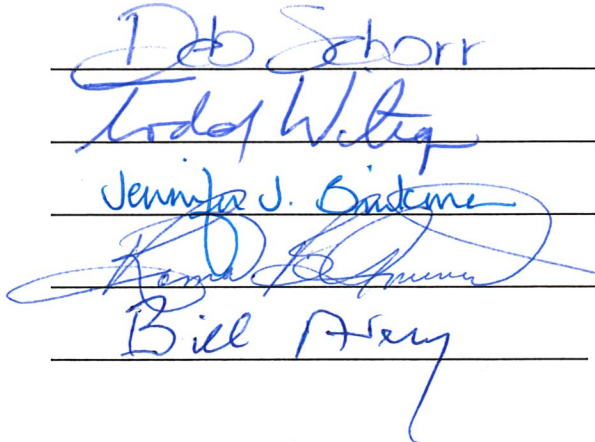 Deb Schorr
Todd Wiltgen
Jennifer J. Brinkman
Roma
Bill Avery